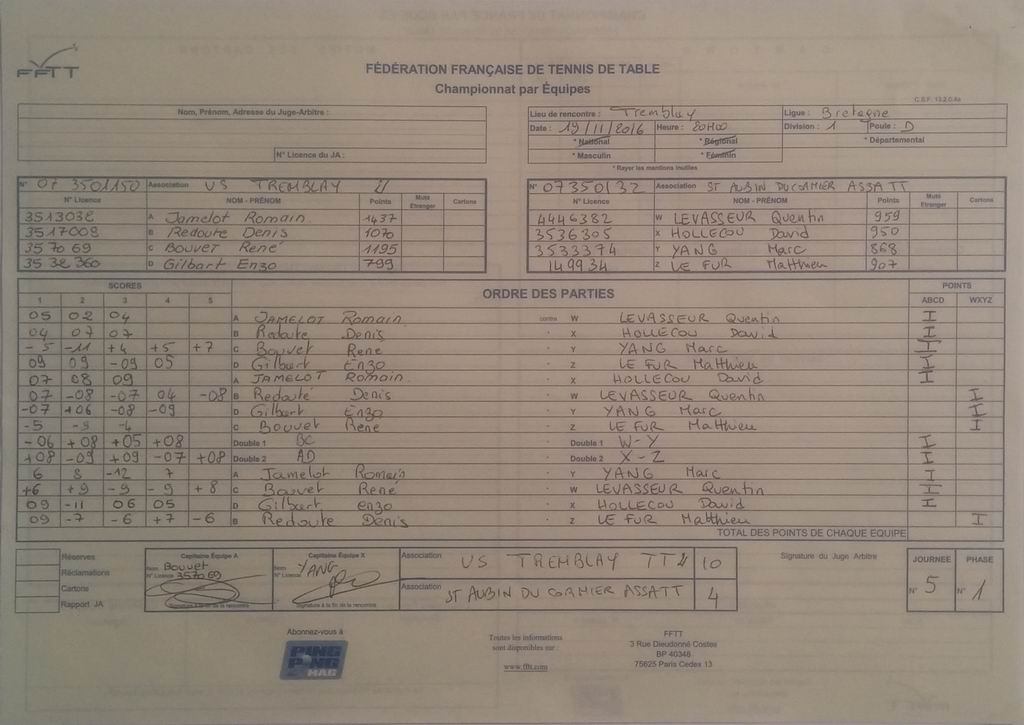 FFTT
FÉDÉRATION FRANÇAISE DE TENNIS DE TABLE
Championnat par Équipes
C.S.F. 13.2.0.4a
Nom, Prénom, Adresse du Juge-Arbitre :
N° Licence du JA :
Lieu de rencontre : Tremblay Ligue : Bretagne
Date : 19/11/2016 Heure : 20H00 Division : 1 Poule : D
* National * Régional * Départemental
* Masculin * Féminin
* Rayer les mentions inutiles
N° 07 3501150 Association US TREMBLAY 4
N° Licence NOM - PRÉNOM Points Muté Etranger Cartons
3513038 A Jamelot Romain 1437
3517008 B Redoute Denis 1070
357069 C Bouvet René 1195
3532360 D Gilbart Enzo 799
N° 07350132 Association ST AUBIN DU CORMIER ASSATT
N° Licence NOM - PRÉNOM Points Muté Etranger Cartons
4446382 W LEVASSEUR Quentin 959
3536305 X HOLLECOU David 950
3533374 Y YANG Marc 868
149934 Z LE FUR Matthieu 907
SCORES ORDRE DES PARTIES POINTS
1 2 3 4 5 ABCD WXYZ
05 02 04 A JAMELOT Romain contre W LEVASSEUR Quentin I
04 07 07 B Redoute Denis - X HOLLECOU David I
-5 -11 +4 +5 +7 C Bouvet René - Y YANG Marc I
09 09 -09 05 D Gilbert Enzo - Z LE FUR Matthieu I
07 08 09 A JAMELOT Romain - X HOLLECOU David I
07 -08 -07 04 -08 B Redouté Denis - W LEVASSEUR Quentin I
-07 +06 -08 -09 D Gilbert Enzo - Y YANG Marc I
-5 -9 -4 C Bouvet René - Z LE FUR Matthieu I
-06 +08 +05 +08 Double 1 BC - Double 1 W-Y I
+08 -09 +09 -07 +08 Double 2 AD - Double 2 X-Z I
6 8 -12 7 A Jamelot Romain - Y YANG Marc I
+6 +9 -9 -9 +8 C Bouvet René - W LEVASSEUR Quentin I
09 -11 06 05 D Gilbert enzo - X HOLLECOU David I
09 -7 -6 +7 -6 B Redoute Denis - Z LE FUR Matthieu I
TOTAL DES POINTS DE CHAQUE EQUIPE
Réserves
Réclamations
Cartons
Rapport JA
Capitaine Équipe A
Nom Bouvet
N° Licence 357069
Signature à la fin de la rencontre
Capitaine Équipe X
Nom YANG
N° Licence
Signature à la fin de la rencontre
Association US TREMBLAY TT 4 10
Association ST AUBIN DU CORMIER ASSATT 4
Signature du Juge Arbitre
JOURNEE PHASE
N° 5 N° 1
Abonnez-vous à
PING PONG MAG
Toutes les informations
sont disponibles sur :
www.fftt.com
FFTT
3 Rue Dieudonné Costes
BP 40348
75625 Paris Cedex 13